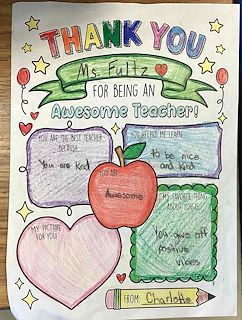 THANK YOU
Ms. Fultz
FOR BEING AN
Awesome Teacher!
YOU ARE THE BEST TEACHER
BECAUSE...
You are kind
YOU HELPED ME LEARN...
to be nice
and kind
YOU ARE
Awesome
MY FAVORITE THING
ABOUT YOU IS
You give off
positive
vibes
MY PICTURE
FOR YOU!
FROM: Charlotte